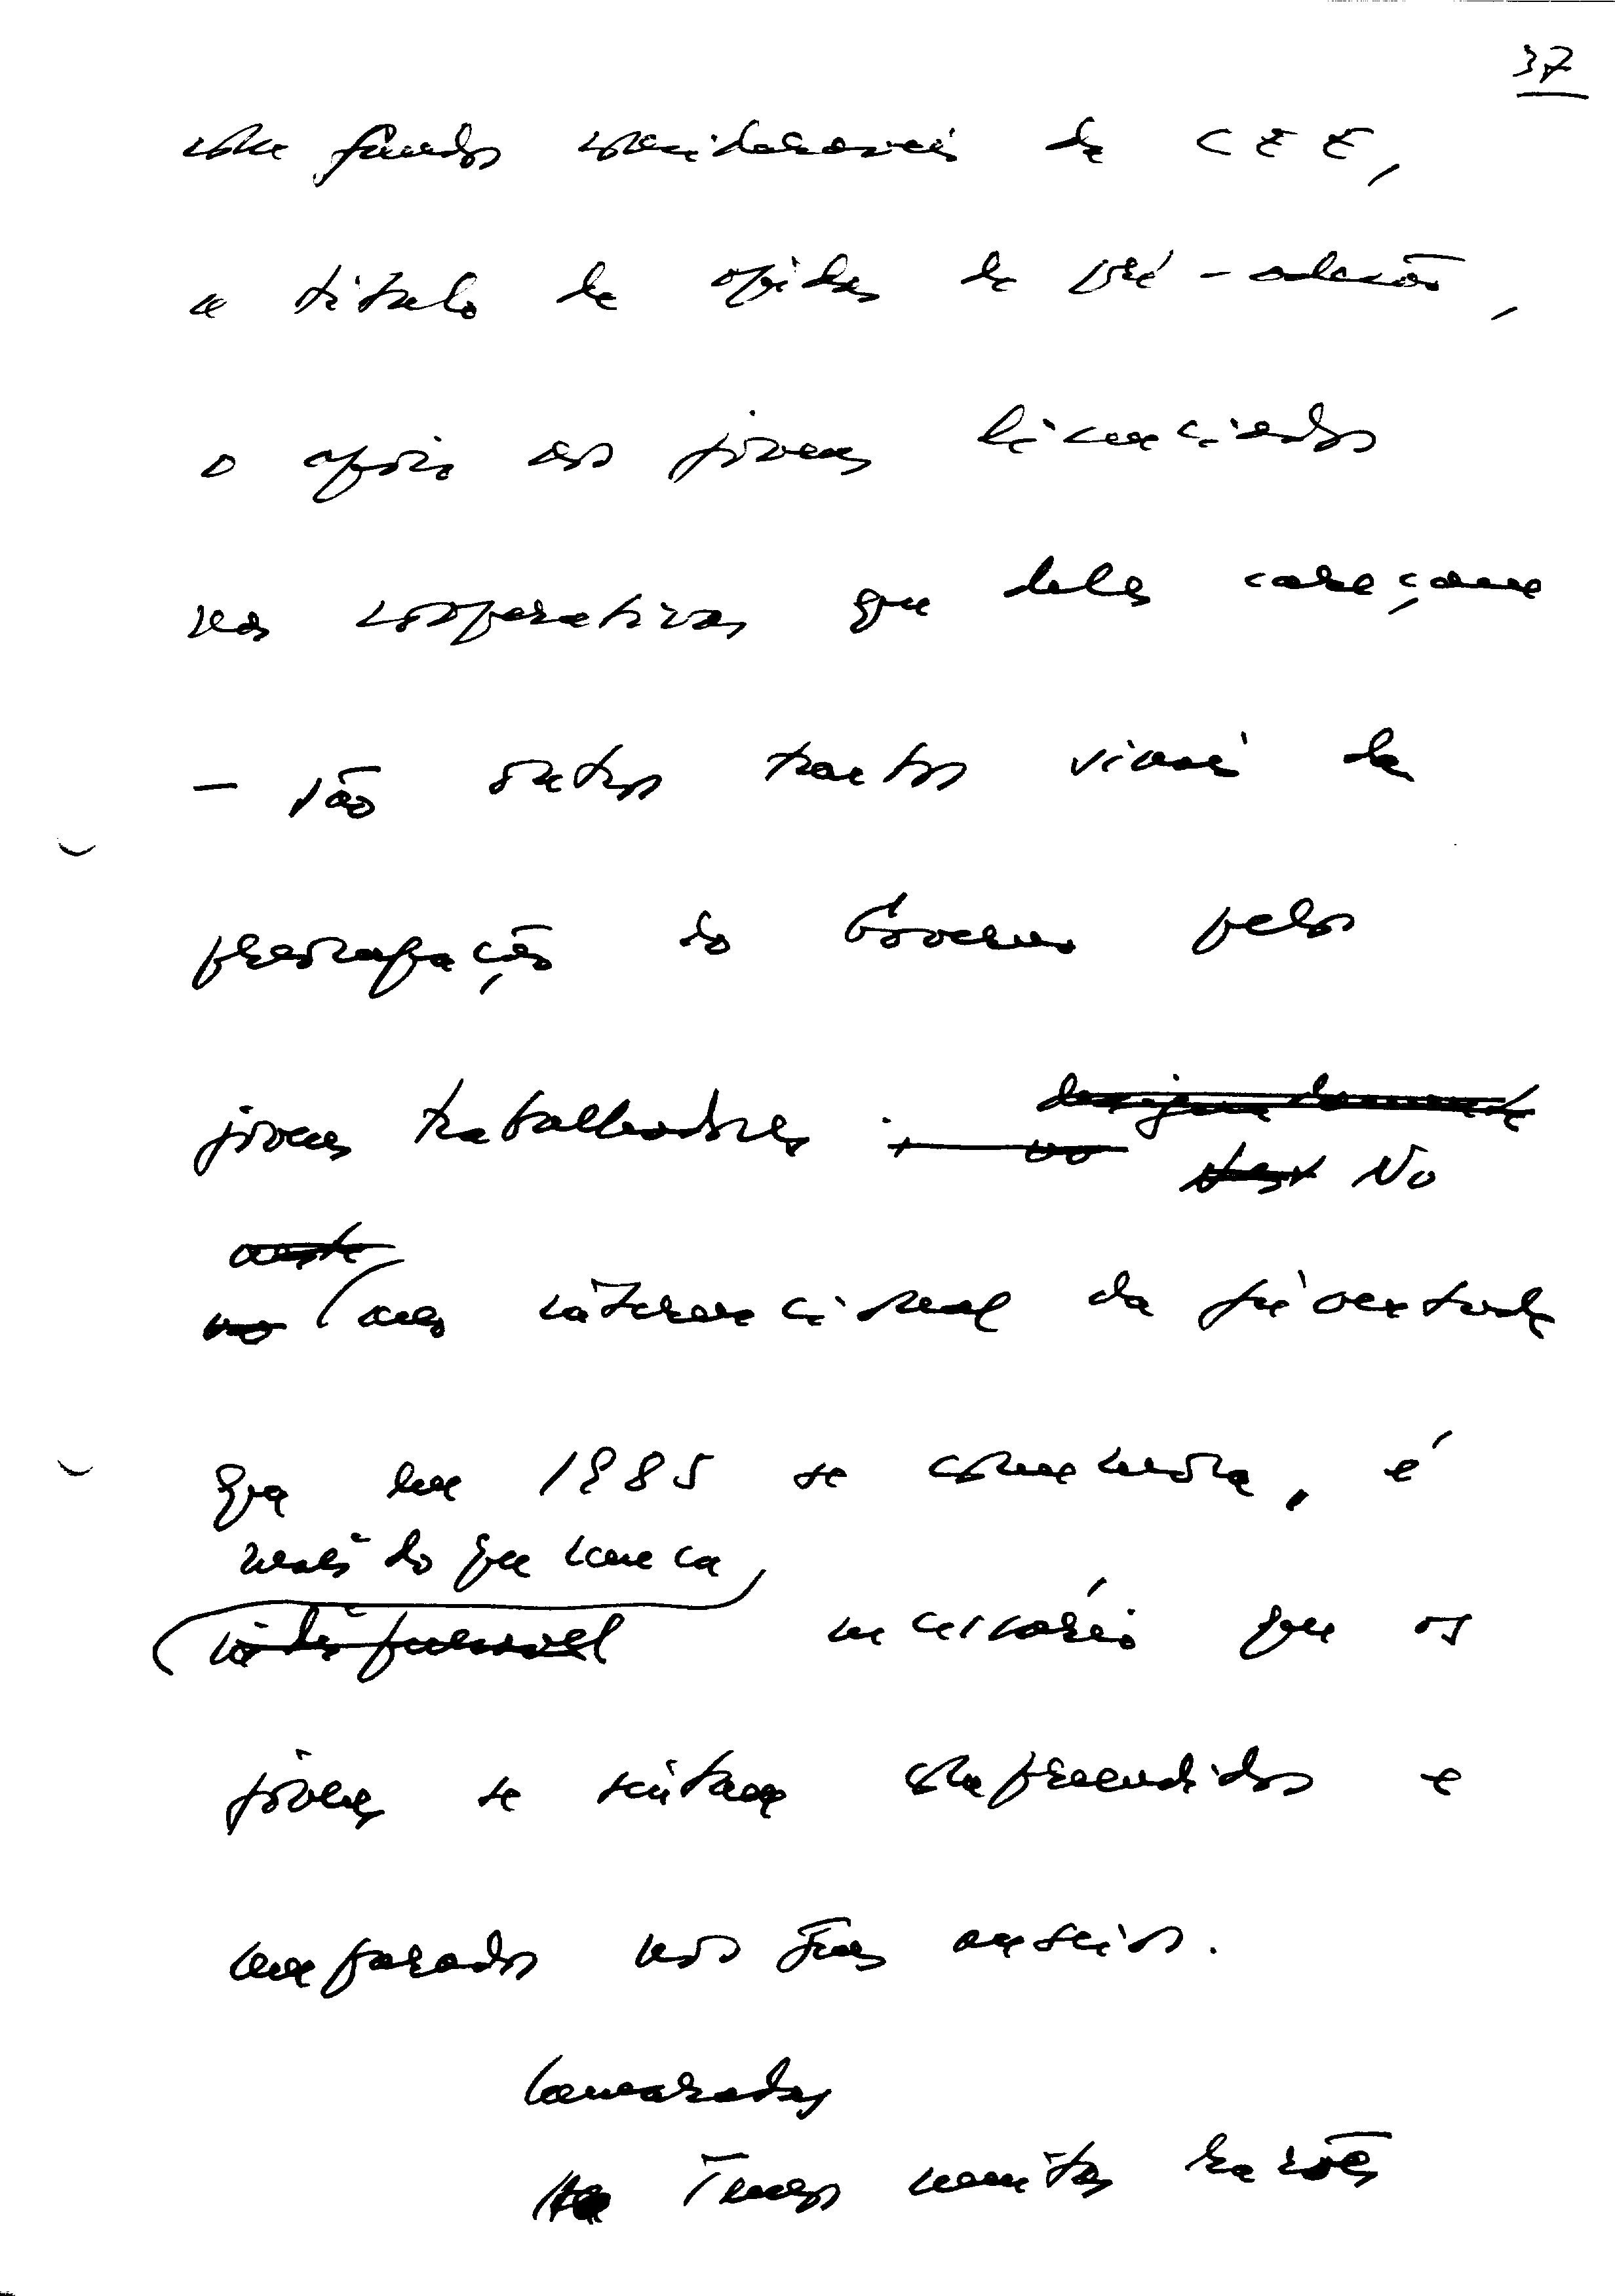 37
com fundos consideráveis da CEE,
a título de ajudas de pré-adesão,
o apoio aos jovens licenciados
nas cooperativas que deles careçam
- são outros tantos sinais da
preocupação do Governo pelos
jovens trabalhadores. No
ano internacional da juventude
que em 1985 se comemora, é
mais do que nunca
indispensável necessário que os
jovens se sintam compreendidos e
amparados nos seus anseios.
Camaradas
Temos muitas razões